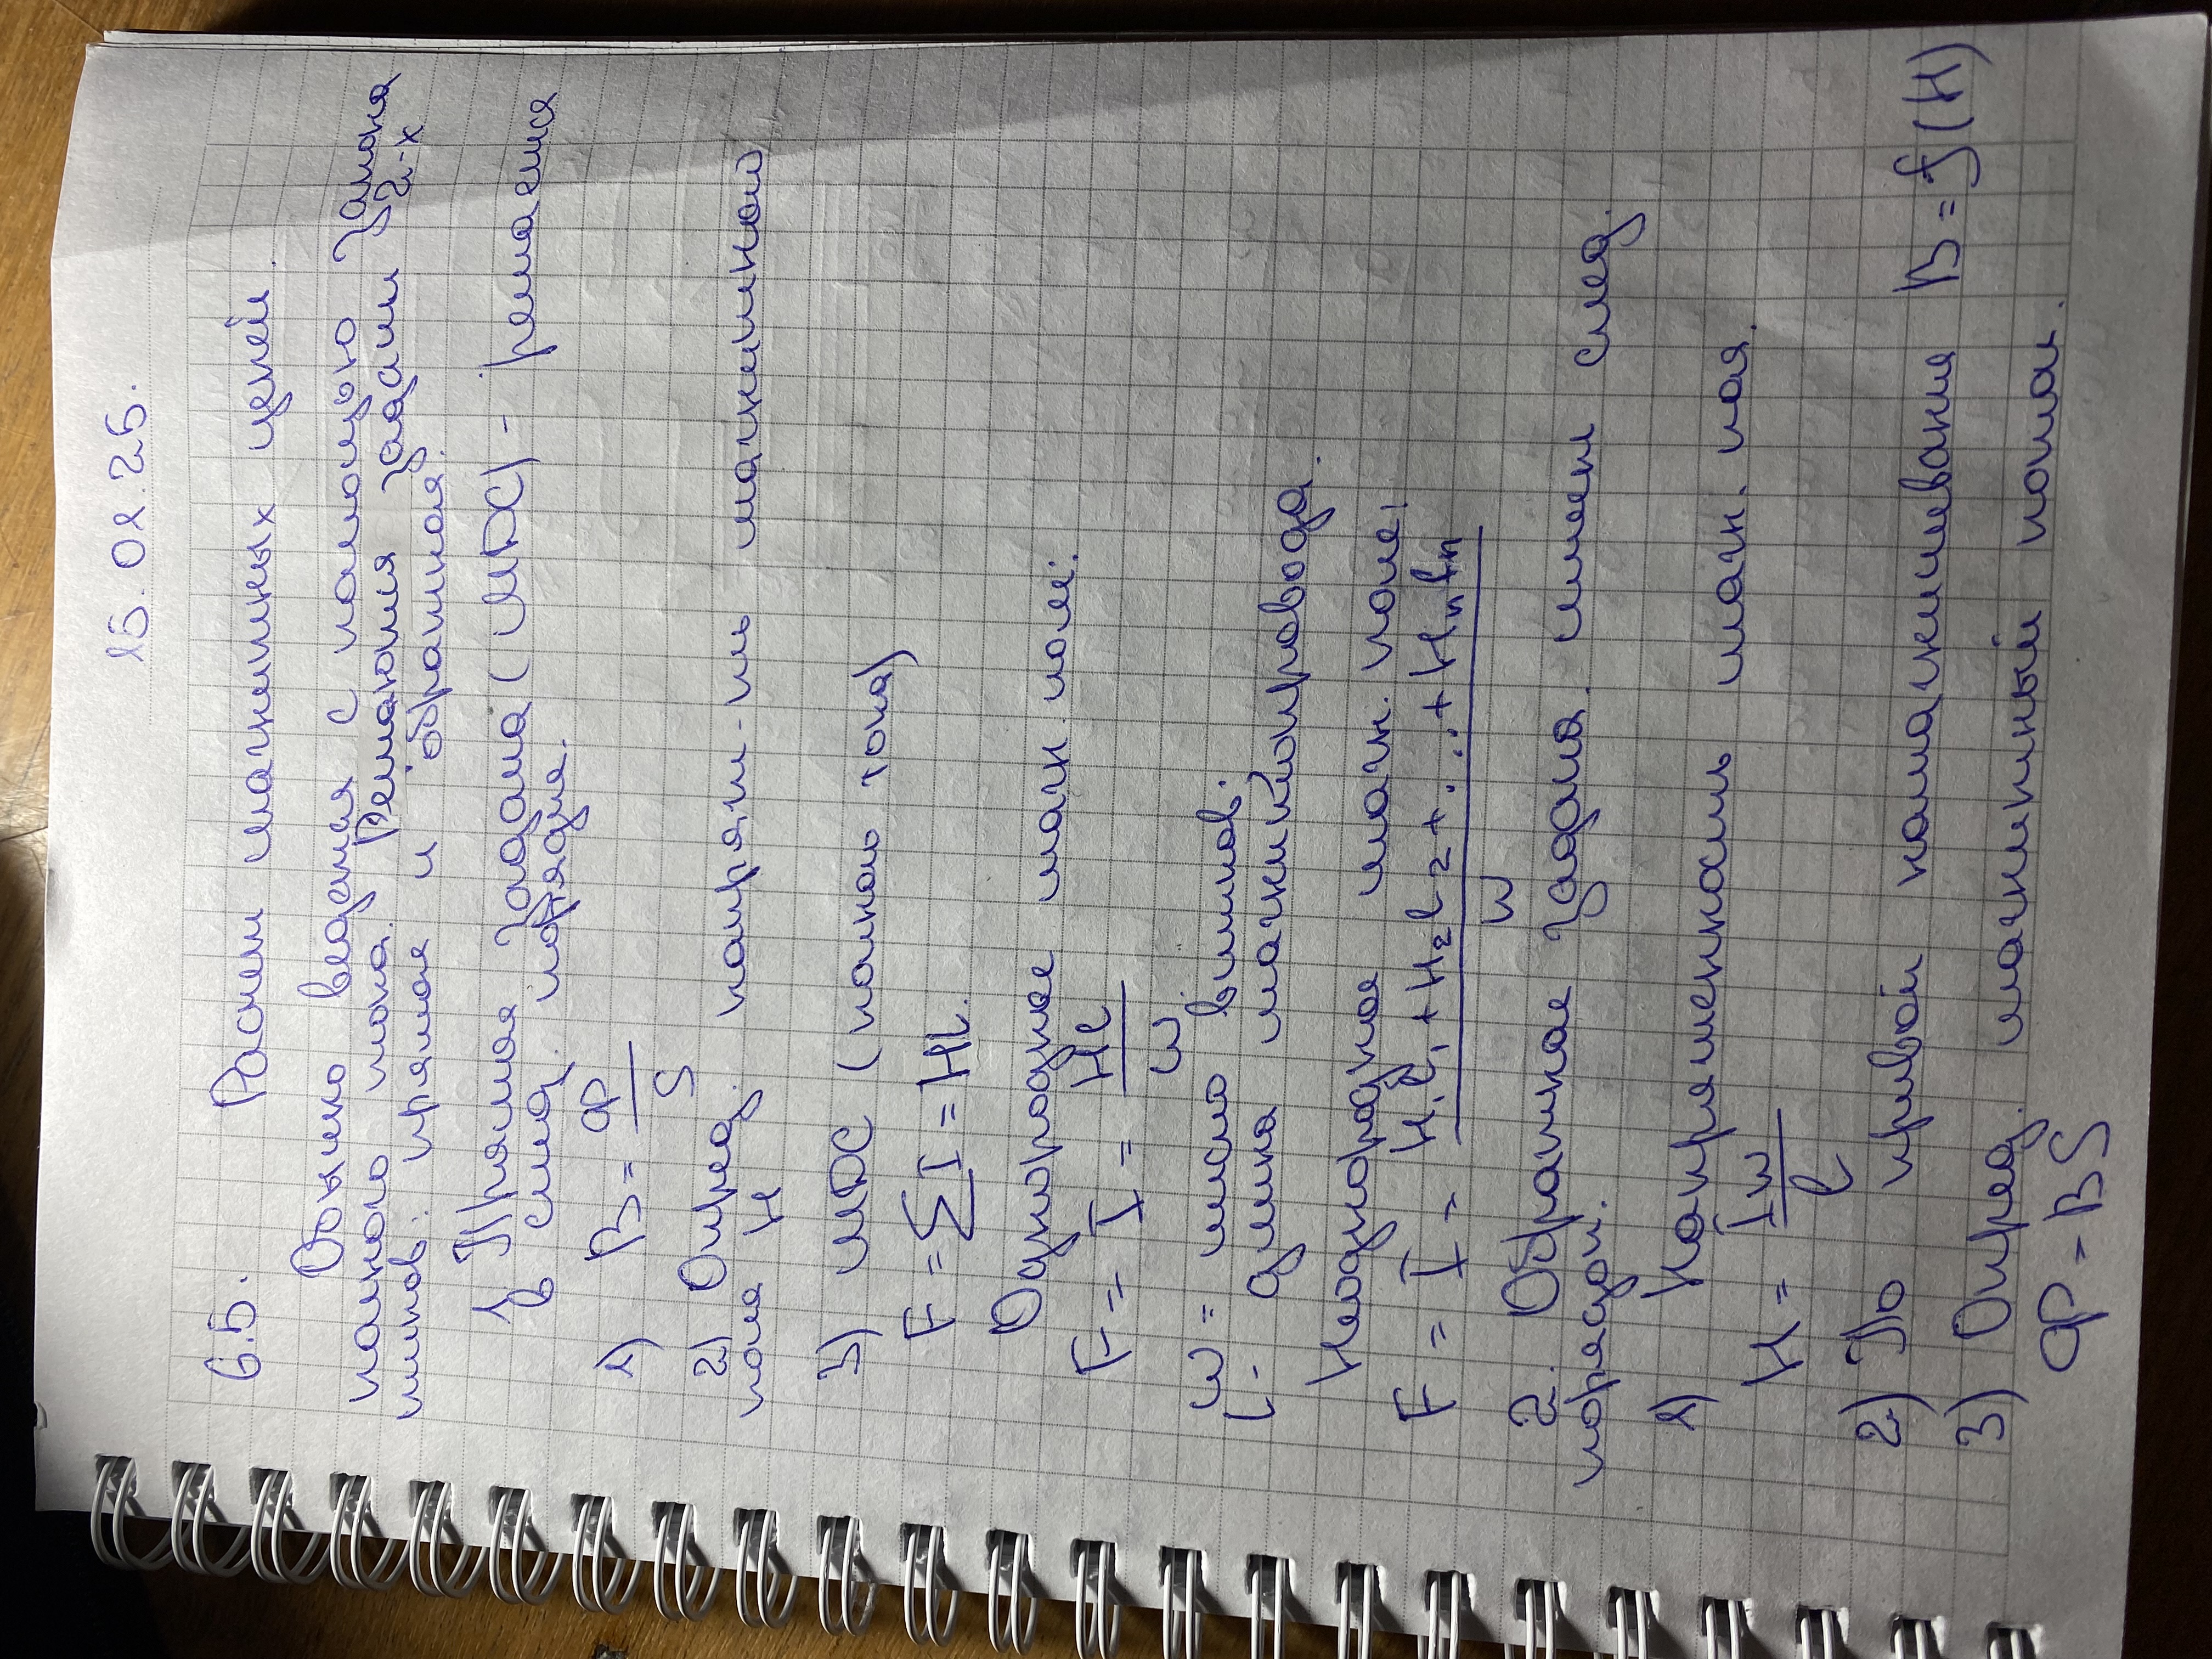 15.02.25.
6.5. Расчёт магнитных цепей.
Обычно ведется с помощью закона
полного тока. Решаются задачи 2-х
типов: прямая и обратная.
1. Прямая задача (МДС) - решается
в след. порядке.
1) B = Ф/S
2) Опред. напряж-ть магнитного
поля H
3) МДС (полного тока)
F = ΣI = Hl.
Однородное магн. поле:
F = I = Hl/w
w = число витков.
l - длина магнитопровода.
Неоднородное магн. поле:
F = I = H₁l₁ + H₂l₂ + ... + Hₙlₙ/w
2. Обратная задача. имеет след.
порядок.
1) Напряженность магн. поя.
H = Iw/l
2) По кривой намагничевания B = f(H)
3) Опред. магнитный поток.
Ф = BS